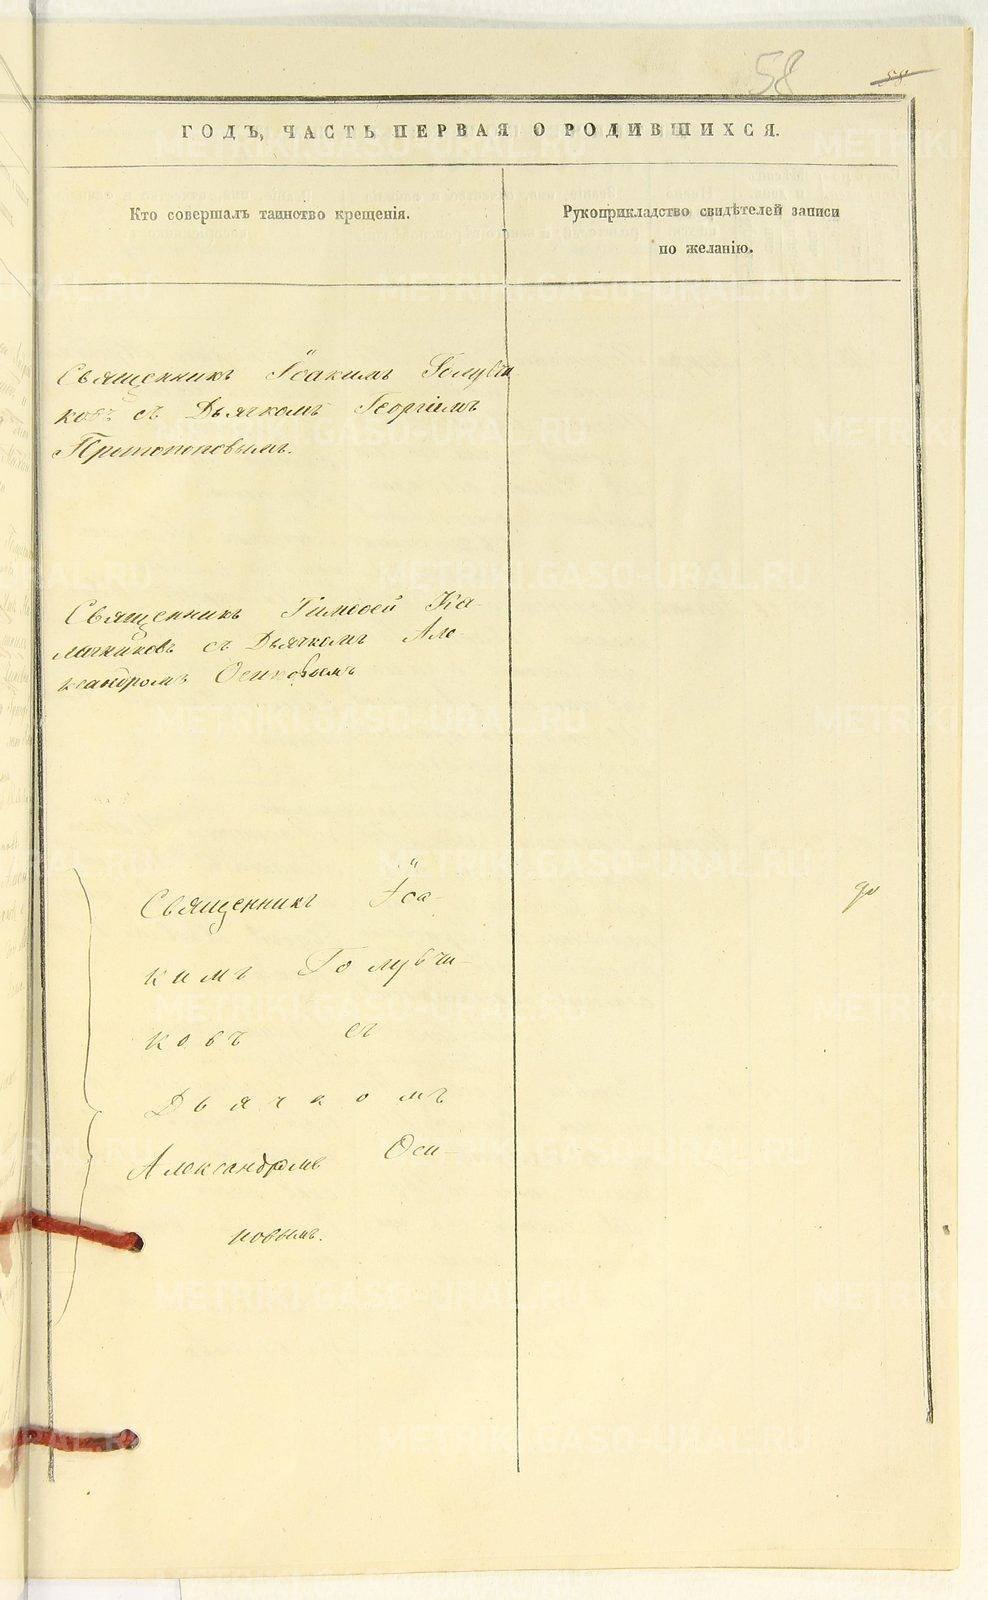 58
58
ГОДЪ, ЧАСТЬ ПЕРВАЯ О РОДИВШИХСЯ.
Кто совершалъ таинство крещенія.
Рукоприкладство свидѣтелей записи
по желанію.
Священникъ Іоакимъ Голубчи
ковъ съ Дьячкомъ Георгіемъ
Протопоповымъ.
Священникъ Тимоѳей Ка-
личниковъ съ Дьячкомъ Але-
ксандромъ Осиповымъ
Священникъ Іоа-
кимъ Голубчи-
ковъ съ
Дьячкомъ
Александромъ Оси-
повымъ.
METRIKI.GASO-URAL.RU